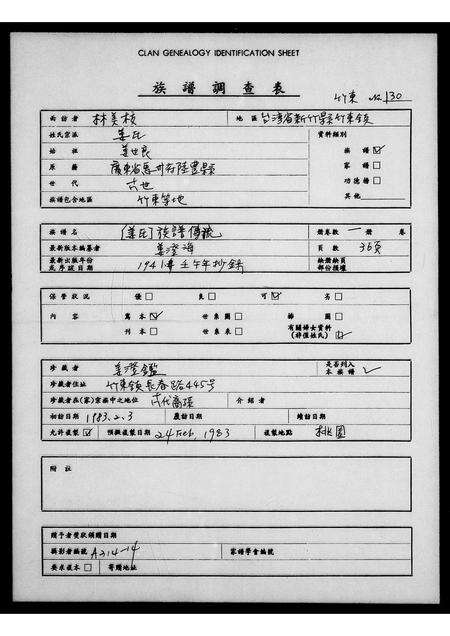 CLAN GENEALOGY IDENTIFICATION SHEET
族譜調查表
竹東 No.130
面訪者 林美枝 地區 台灣省新竹縣竹東鎮
姓氏宗派 姜氏 資料類別
始祖 姜世良 族譜 ☑
原籍 廣東省惠州府陸豐縣 家譜 □
世代 六世 功德榜 □
族譜包含地區 竹東等地 其他
族譜名 [姜氏]族譜傳流 譜卷數 一 冊 卷
最新版本編纂者 姜澄海 頁數 36頁
最新出版年份 1941年壬午年抄錄
及序跋日期 部份損壞
保管狀況 優 □ 良 □ 可 ☑ 劣 □
內容 寫本 ☑ 世系圖 □ 師圖 □
刊本 □ 世系表 □ 有關婦女資料 ☑
(非僅姓氏)
珍藏者 姜澄鑑 是否列入
本族譜 ✓
珍藏者住址 竹東鎮長春路445號
珍藏者在(家)宗族中之地位 六代裔孫 介紹者
初訪日期 1983.2.3 覆訪日期 續訪日期
允許複製 ☑ 預擬複製日期 24 Feb. 1983 複製地點 桃園
附註
贈予者獎狀頒贈日期
攝影者編號 A214-14 家譜學會編號
要求複本 □ 寄贈地址